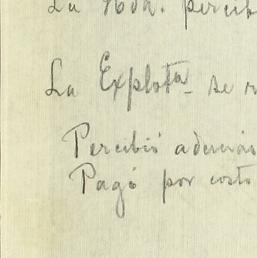 La Hda. percib
La Explota- se r
Percibió además
Pagó por costo